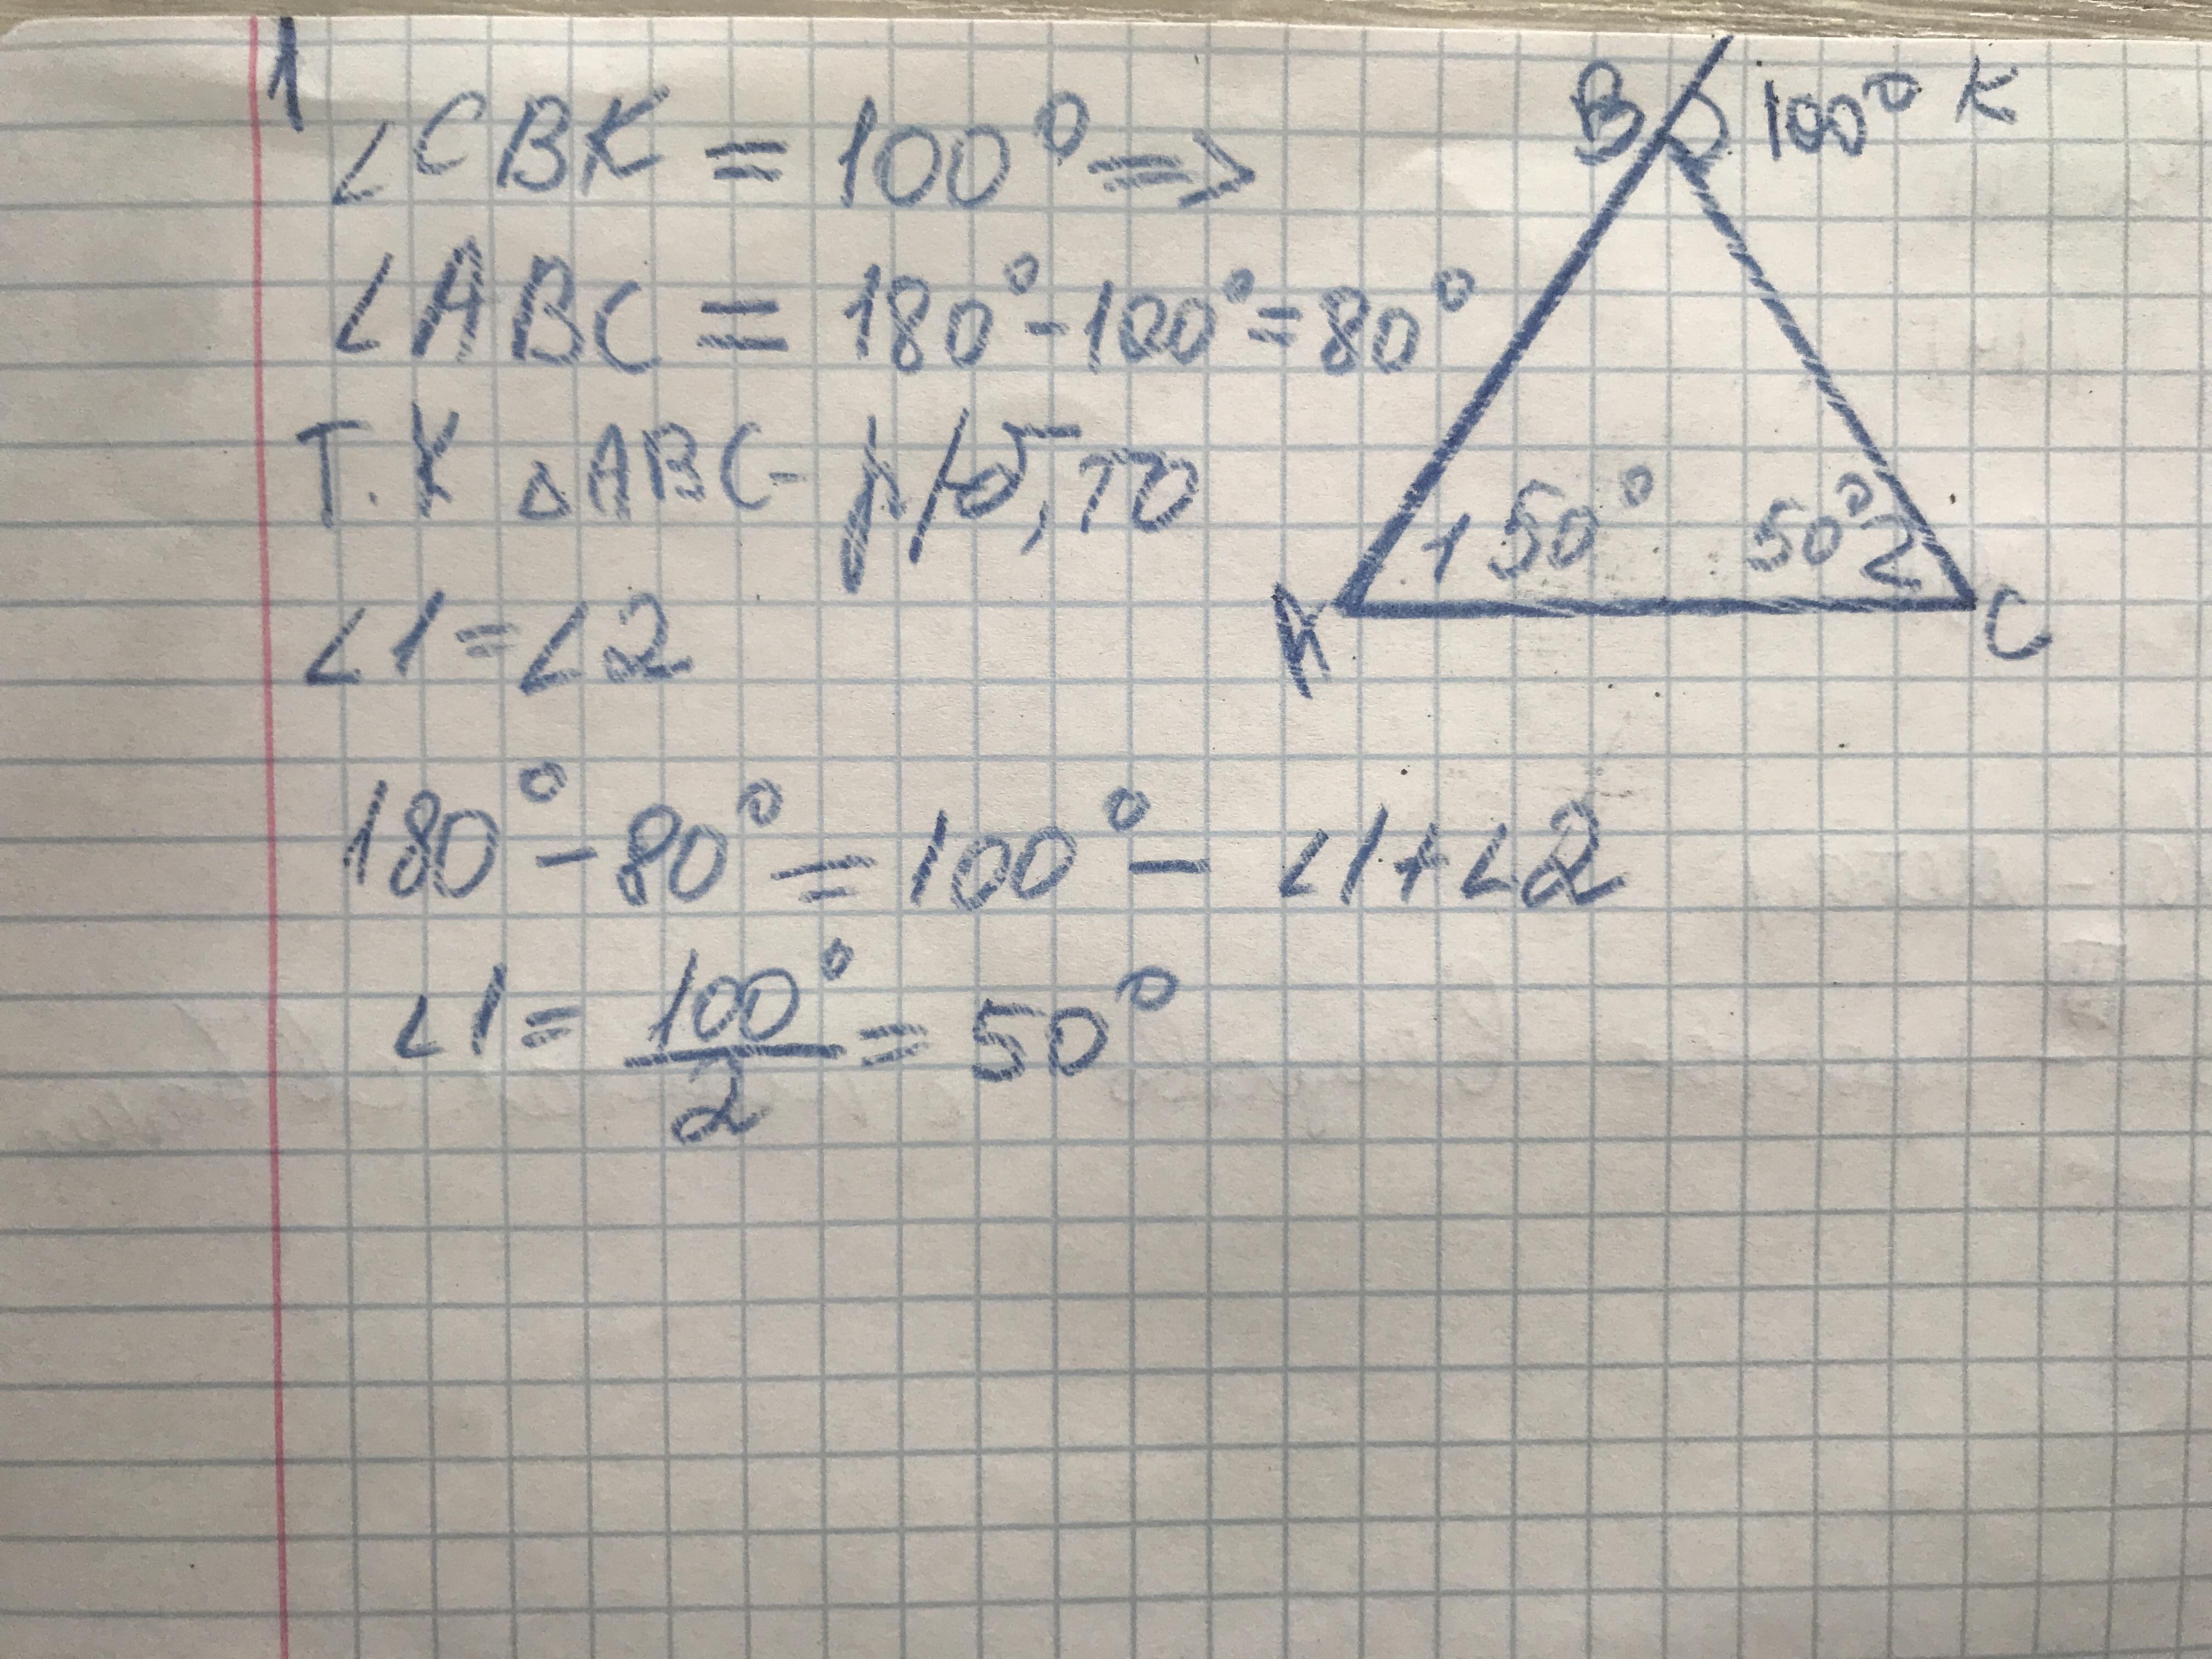 1
∠CBK = 100° =>
∠ABC = 180° - 100° = 80°
Т.К △ABC - р/б, то
∠1 = ∠2
180° - 80° = 100° - ∠1 + ∠2
∠1 = 100°/2 = 50°
B 100° K
1 50° 50° 2
A C